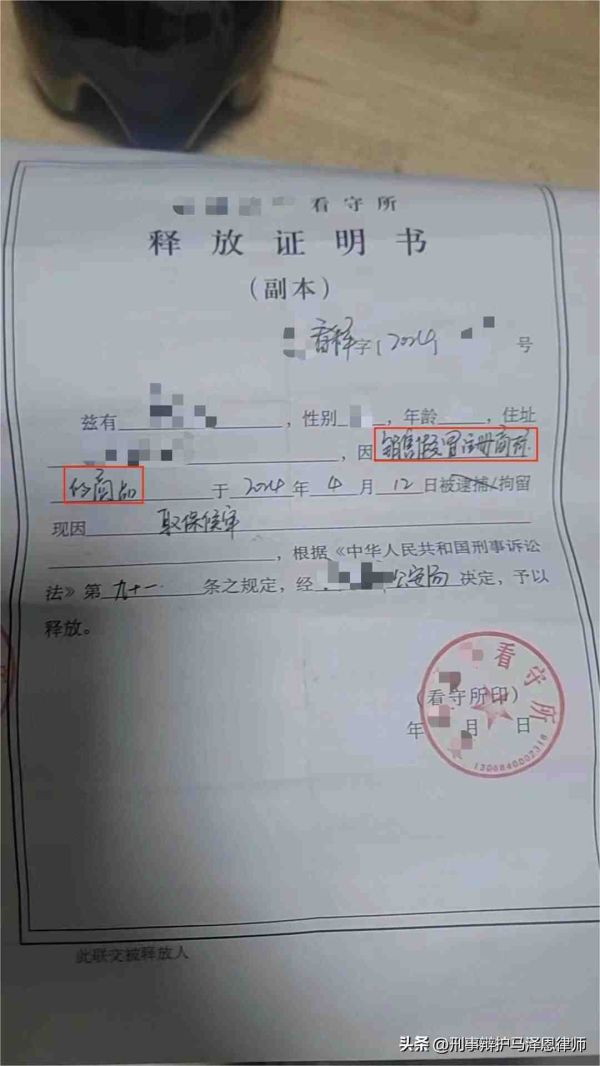 看守所
释放证明书
（副本）
看释字〔2024〕 号
兹有 ，性别 ，年龄 ，住址
，因销售假冒注册商标
的商品 于 2024 年 4 月 12 日被逮捕/拘留
现因 取保候审
，根据《中华人民共和国刑事诉讼
法》第 九十一 条之规定，经 公安局 决定，予以
释放。
看守所
（看守所印）
年 月 日
1306840002318
此联交被释放人
头条 @刑事辩护马泽恩律师